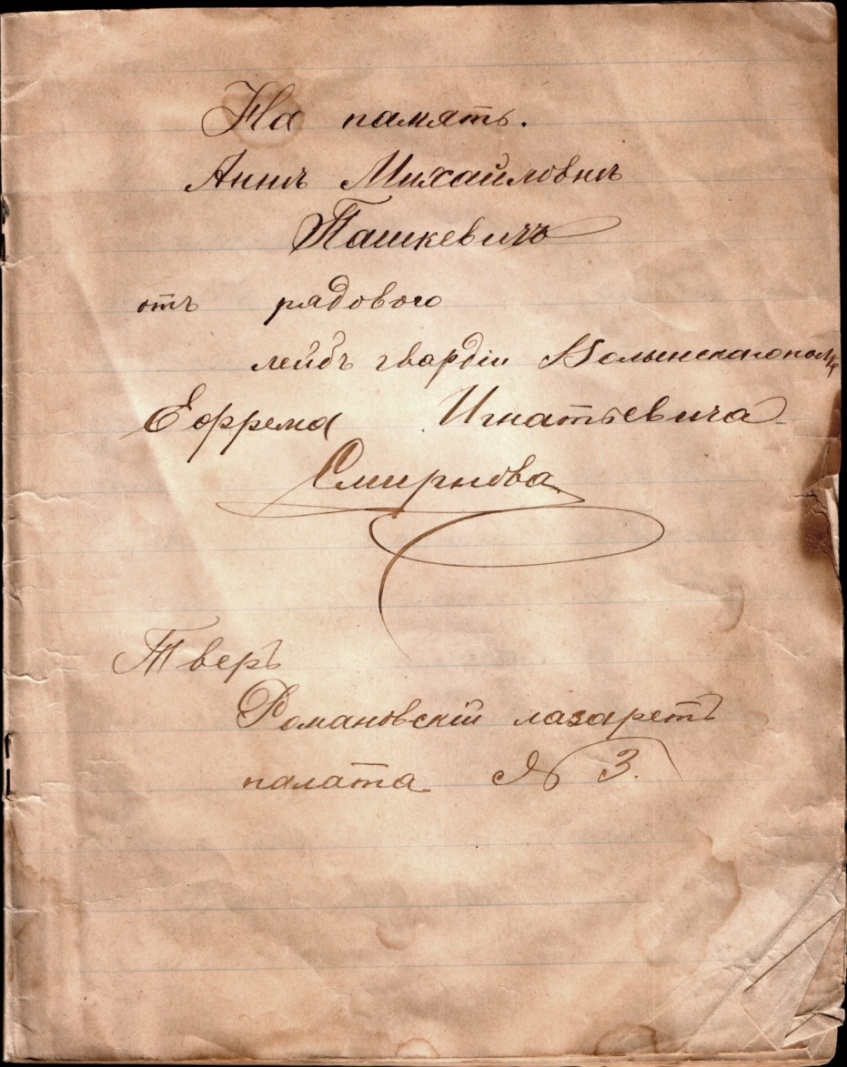 На память.
Аннѣ Михайловнѣ
Пашкевичъ
отъ рядового
лейбъ гвардіи Волынскагополк
Ефрема Игнатьевича
Смирнова
Тверь
Романовскій лазаретъ
палата № 3.